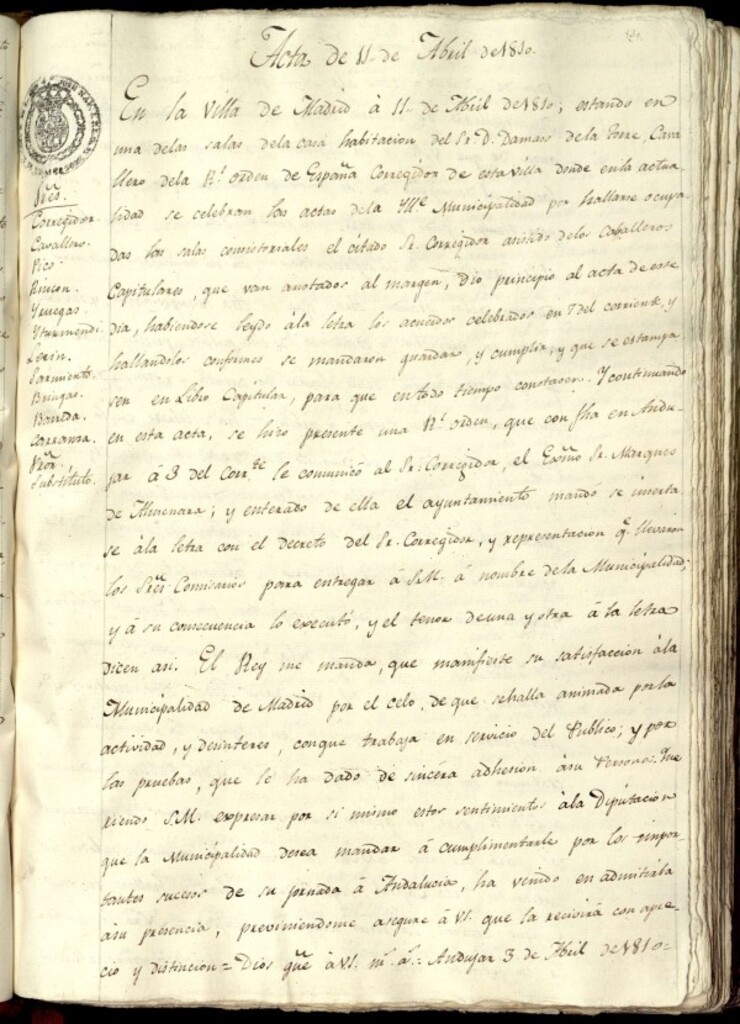 Acta de 11 de Abril de 1810.
En la Villa de Madrid à 11 de Abril de 1810; estando en
una delas salas dela casa habitacion del Sr. D. Damaso de la Torre, Cava
llero dela Rl. orden de España Corregidor de esta villa donde enla actua
lidad se celebran las actas dela Ylle. Municipalidad por hallarse ocupa
das las salas consistoriales el citado Sr. Corregidor asistido delos Caballeros
Capitulares, que van anotados al margen, Dio principio al acta de este
Dia, habiendose leydo àla letra los acuerdos celebrados en 7 del corriente, y
hallandolos conformes se mandaron guardar, y cumplir, y que se estampa
sen en Libro Capitular, para que entodo tiempo constasen. Y continuando
en esta acta, se hizo presente una Rl. orden, que con fha en Andu-
jar à 3 del Corrte. le comunicó al Sr. Corregidor, el Exmo Sr. Marques
de Almenara; y enterado de ella el ayuntamiento mandó se inserta
se àla letra con el decreto del Sr. Corregidor, y representacion q. llevaron
los Sres. Comisarios para entregar à S.M. à nombre dela Municipalidad;
y à su consecuencia lo executó, y el tenor deuna y otra à la letra
dicen asi. El Rey me manda, que manifieste su satisfaccion àla
Municipalidad de Madrid por el celo, de que sehalla animada porla
actividad, y desinteres, conque trabaja en servicio del Publico; y por
las pruebas, que le ha dado de sincera adhesion àsu Persona. Que
riendo S.M. expresar por si mismo estos sentimientos àla Diputacion
que la Municipalidad desea mandar à cumplimentarle por los impor-
tantes sucesos de su jornada à Andalucia, ha venido en admitirla
àsu presencia, previniendome asegure à VS. que la recivirà con apre-
cio y distincion = Dios gue. à VS. ms. as. = Andujar 3 de Abril de 1810 =
Sres.
Corregidor.
Cavallero.
Pico.
Rincon.
Yruegas.
Yturmendi.
Lerin.
Sarmiento.
Bringas.
Barreda.
Carranza.
Pror.
Substituto.